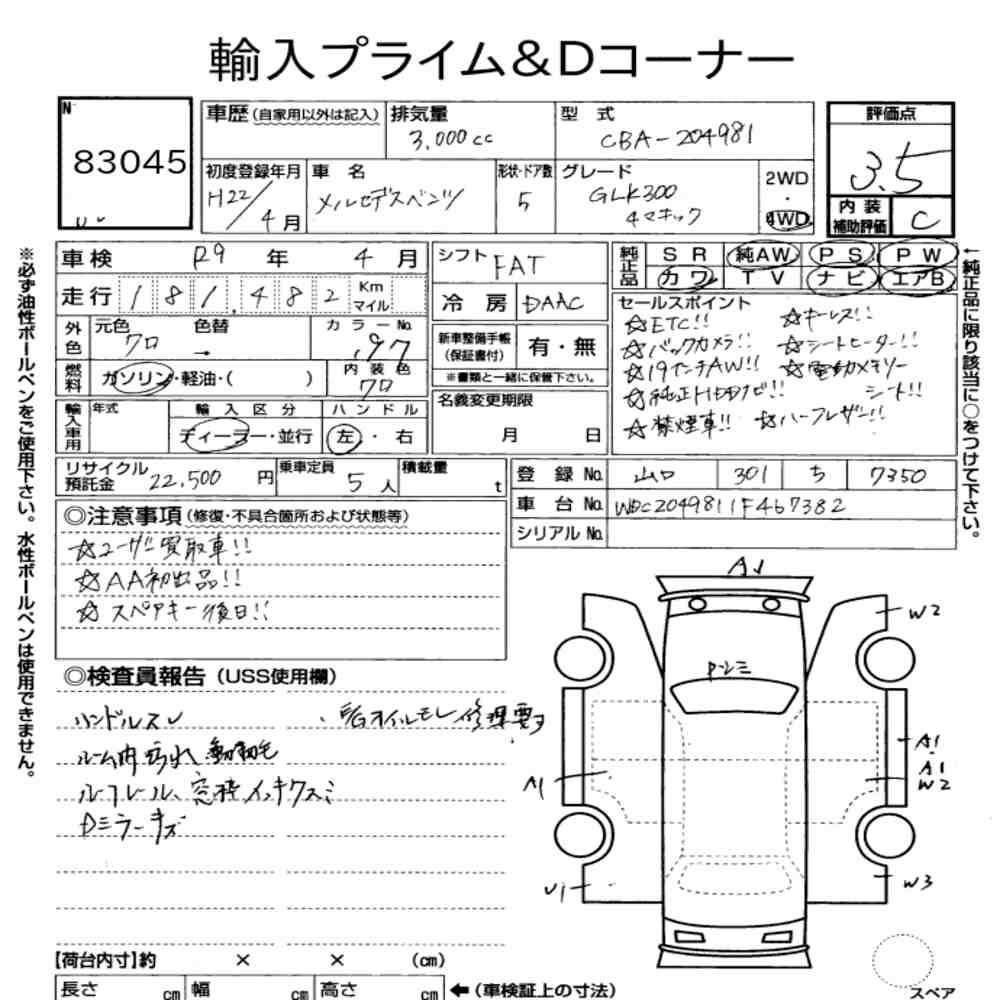 輸入プライム&Dコーナー
N
83045
車歴 (自家用以外は記入)
排気量
3,000cc
型 式
CBA-204981
評価点
3.5
初度登録年月
H22/4月
車 名
メルセデスベンツ
形状・ドア数
5
グレード
GLK300
4マチック
2WD
・
4WD
内装
補助評価
C
車検 R9 年 4 月
走行 181,482 Km
マイル
シフト FAT
冷 房 DAAC
純正品
SR 純AW PS PW
カワ TV ナビ エアB
外色
元色 クロ
色替 →
カラーNo. 197
燃料
ガソリン・軽油・( )
内装色 クロ
輸入車用
年式
輸入区分
ディーラー・並行
ハンドル
左・右
新車整備手帳
(保証書付)
有・無
※書類と一緒に保管下さい。
名義変更期限
月 日
セールスポイント
☆ETC!! ☆キーレス!!
☆バックカメラ!! ☆シートヒーター!!
☆19インチAW!! ☆電動メモリーシート!!
☆純正HDDナビ!!
☆禁煙車!! ☆ハーフレザー!!
←純正品に限り該当に○をつけて下さい。
※必ず油性ボールペンをご使用下さい。水性ボールペンは使用できません。
リサイクル
預託金
22,500 円
乗車定員
5 人
積載量
t
登録No. 山口 301 ち 7350
車台No. WDC2049811F467382
シリアルNo.
◎注意事項 (修復・不具合箇所および状態等)
☆ユーザー買取車!!
☆AA初出品!!
☆スペアキー後日!!
◎検査員報告 (USS使用欄)
ハンドルスレ
ルーム内汚れ 動物毛
ルーフレール、窓枠メッキクスミ
Dミラーキズ
オイルモレ修理要す
A
W2
A1
A1
W2
A1
W3
U1
【荷台内寸】約 × × (cm)
長さ cm 幅 cm 高さ cm ←(車検証上の寸法)
スペア